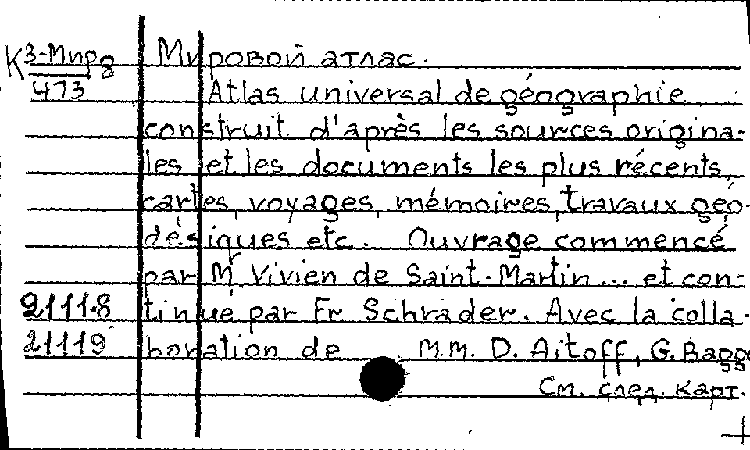 К 3-Мир8 Мировой атлас.
473 Atlas universal de géographie
construit d'après les sources origina-
les et les documents les plus récents,
cartes, voyages, mémoires, travaux géo-
désiques etc. Ouvrage commencé
par Mr Vivien de Saint-Martin... et con-
21118 tinué par Fr Schrader. Avec la colla-
21119 boration de M.M. D. Aitoff, G. Bagg
См. след. карт.